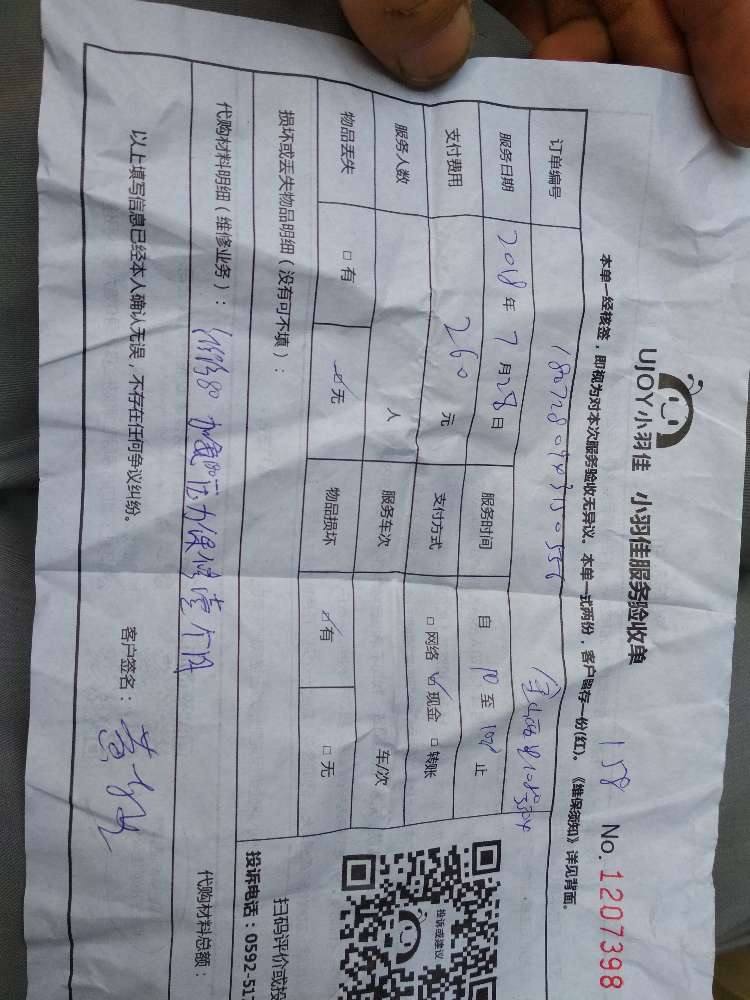 UJOY小羽佳 小羽佳服务验收单
158 No.1207398
本单一经核签，即视为对本次服务验收无异议。本单一式两份，客户留存一份(红)。《维保须知》详见背面。
订单编号
服务日期 2018年7月28日 服务时间 自 至 止
支付费用 260元 支付方式 □网络 ☑现金 □转账
服务人数 人 服务车次 车/次
物品丢失 □有 ☑无 物品损坏 ☑有 □无
损坏或丢失物品明细（没有可不填）：
代购材料明细（维修业务）： 压力保修壹个月 代购材料总额：
以上填写信息已经本人确认无误，不存在任何争议纠纷。 客户签名：
投诉或建议
扫码评价或投
投诉电话：0592-517